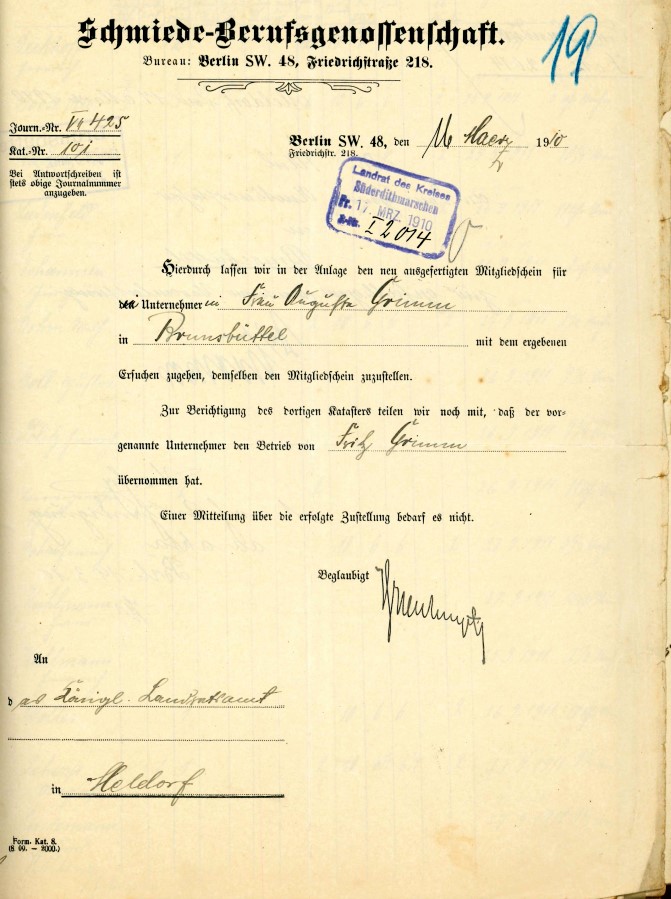 Schmiede-Berufsgenossenschaft.
19
Bureau: Berlin SW. 48, Friedrichstraße 218.
Journ.-Nr. VII 425
Kat.-Nr. 101
Bei Antwortschreiben ist
stets obige Journalnummer
anzugeben.
Berlin SW. 48, den 16 Maerz 1910
Friedrichstr. 218.
Landrat des Kreises
Süderdithmarschen
Pr. 17. MRZ. 1910
J.-Nr. I 2014
Hierdurch lassen wir in der Anlage den neu ausgefertigten Mitgliedschein für
Unternehmerin Frau Auguste Grimm
in Brunsbüttel mit dem ergebenen
Ersuchen zugehen, demselben den Mitgliedschein zuzustellen.
Zur Berichtigung des dortigen Katasters teilen wir noch mit, daß der vor-
genannte Unternehmer den Betrieb von Fritz Grimm
übernommen hat.
Einer Mitteilung über die erfolgte Zustellung bedarf es nicht.
Beglaubigt
An
das Königl. Landratsamt
in Meldorf
Form. Kat. 8.
(8 09. — 2000.)